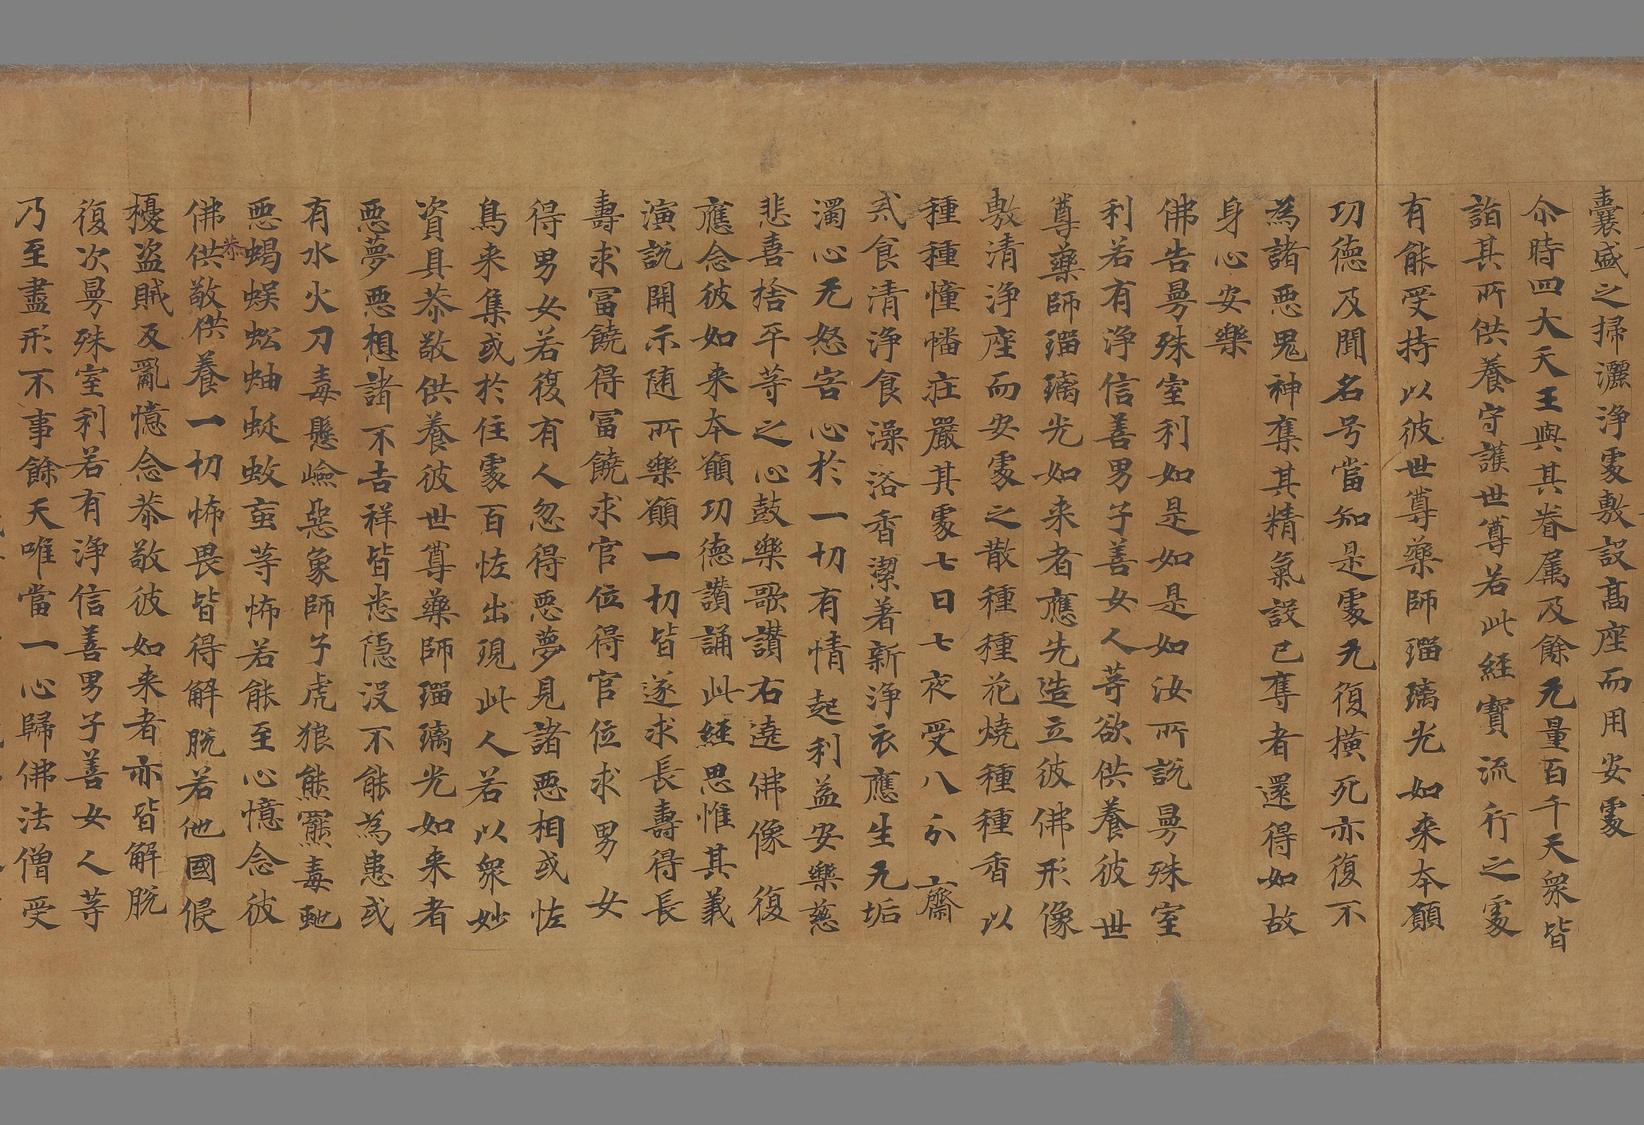 囊盛之掃灑浄處敷設高座而用安處
尒時四大天王與其眷属及餘无量百千天衆皆
詣其所供養守護世尊若此経寶流行之處
有能受持以彼世尊藥師瑠璃光如来本願
功德及聞名号當知是處无復横死亦復不
為諸惡鬼神奪其精氣設已奪者還得如故
身心安樂
佛告曼殊室利如是如是如汝所說曼殊室
利若有浄信善男子善女人等欲供養彼世
尊藥師瑠璃光如来者應先造立彼佛形像
敷清浄座而安處之散種種花燒種種香以
種種幢幡莊嚴其處七日七夜受八分齋
戒食清浄食澡浴香潔著新浄衣應生无垢
濁心无怒害心於一切有情起利益安樂慈
悲喜捨平等之心鼓樂歌讚右遶佛像復
應念彼如来本願功德讀誦此経思惟其義
演說開示随所樂願一切皆遂求長壽得長
壽求冨饒得冨饒求官位得官位求男女
得男女若復有人忽得惡夢見諸惡相或恠
鳥来集或於住處百恠出現此人若以衆妙
資具恭敬供養彼世尊藥師瑠璃光如来者
惡夢惡相諸不吉祥皆悉隱没不能為患或
有水火刀毒懸嶮惡象師子虎狼熊羆毒虵
惡蝎蜈蚣蚰蜒蚊䖟等怖若能至心憶念彼
佛供恭敬供養一切怖畏皆得解脫若他國侵
擾盗賊反亂憶念恭敬彼如来者亦皆解脫
復次曼殊室利若有浄信善男子善女人等
乃至盡形不事餘天唯當一心歸佛法僧受